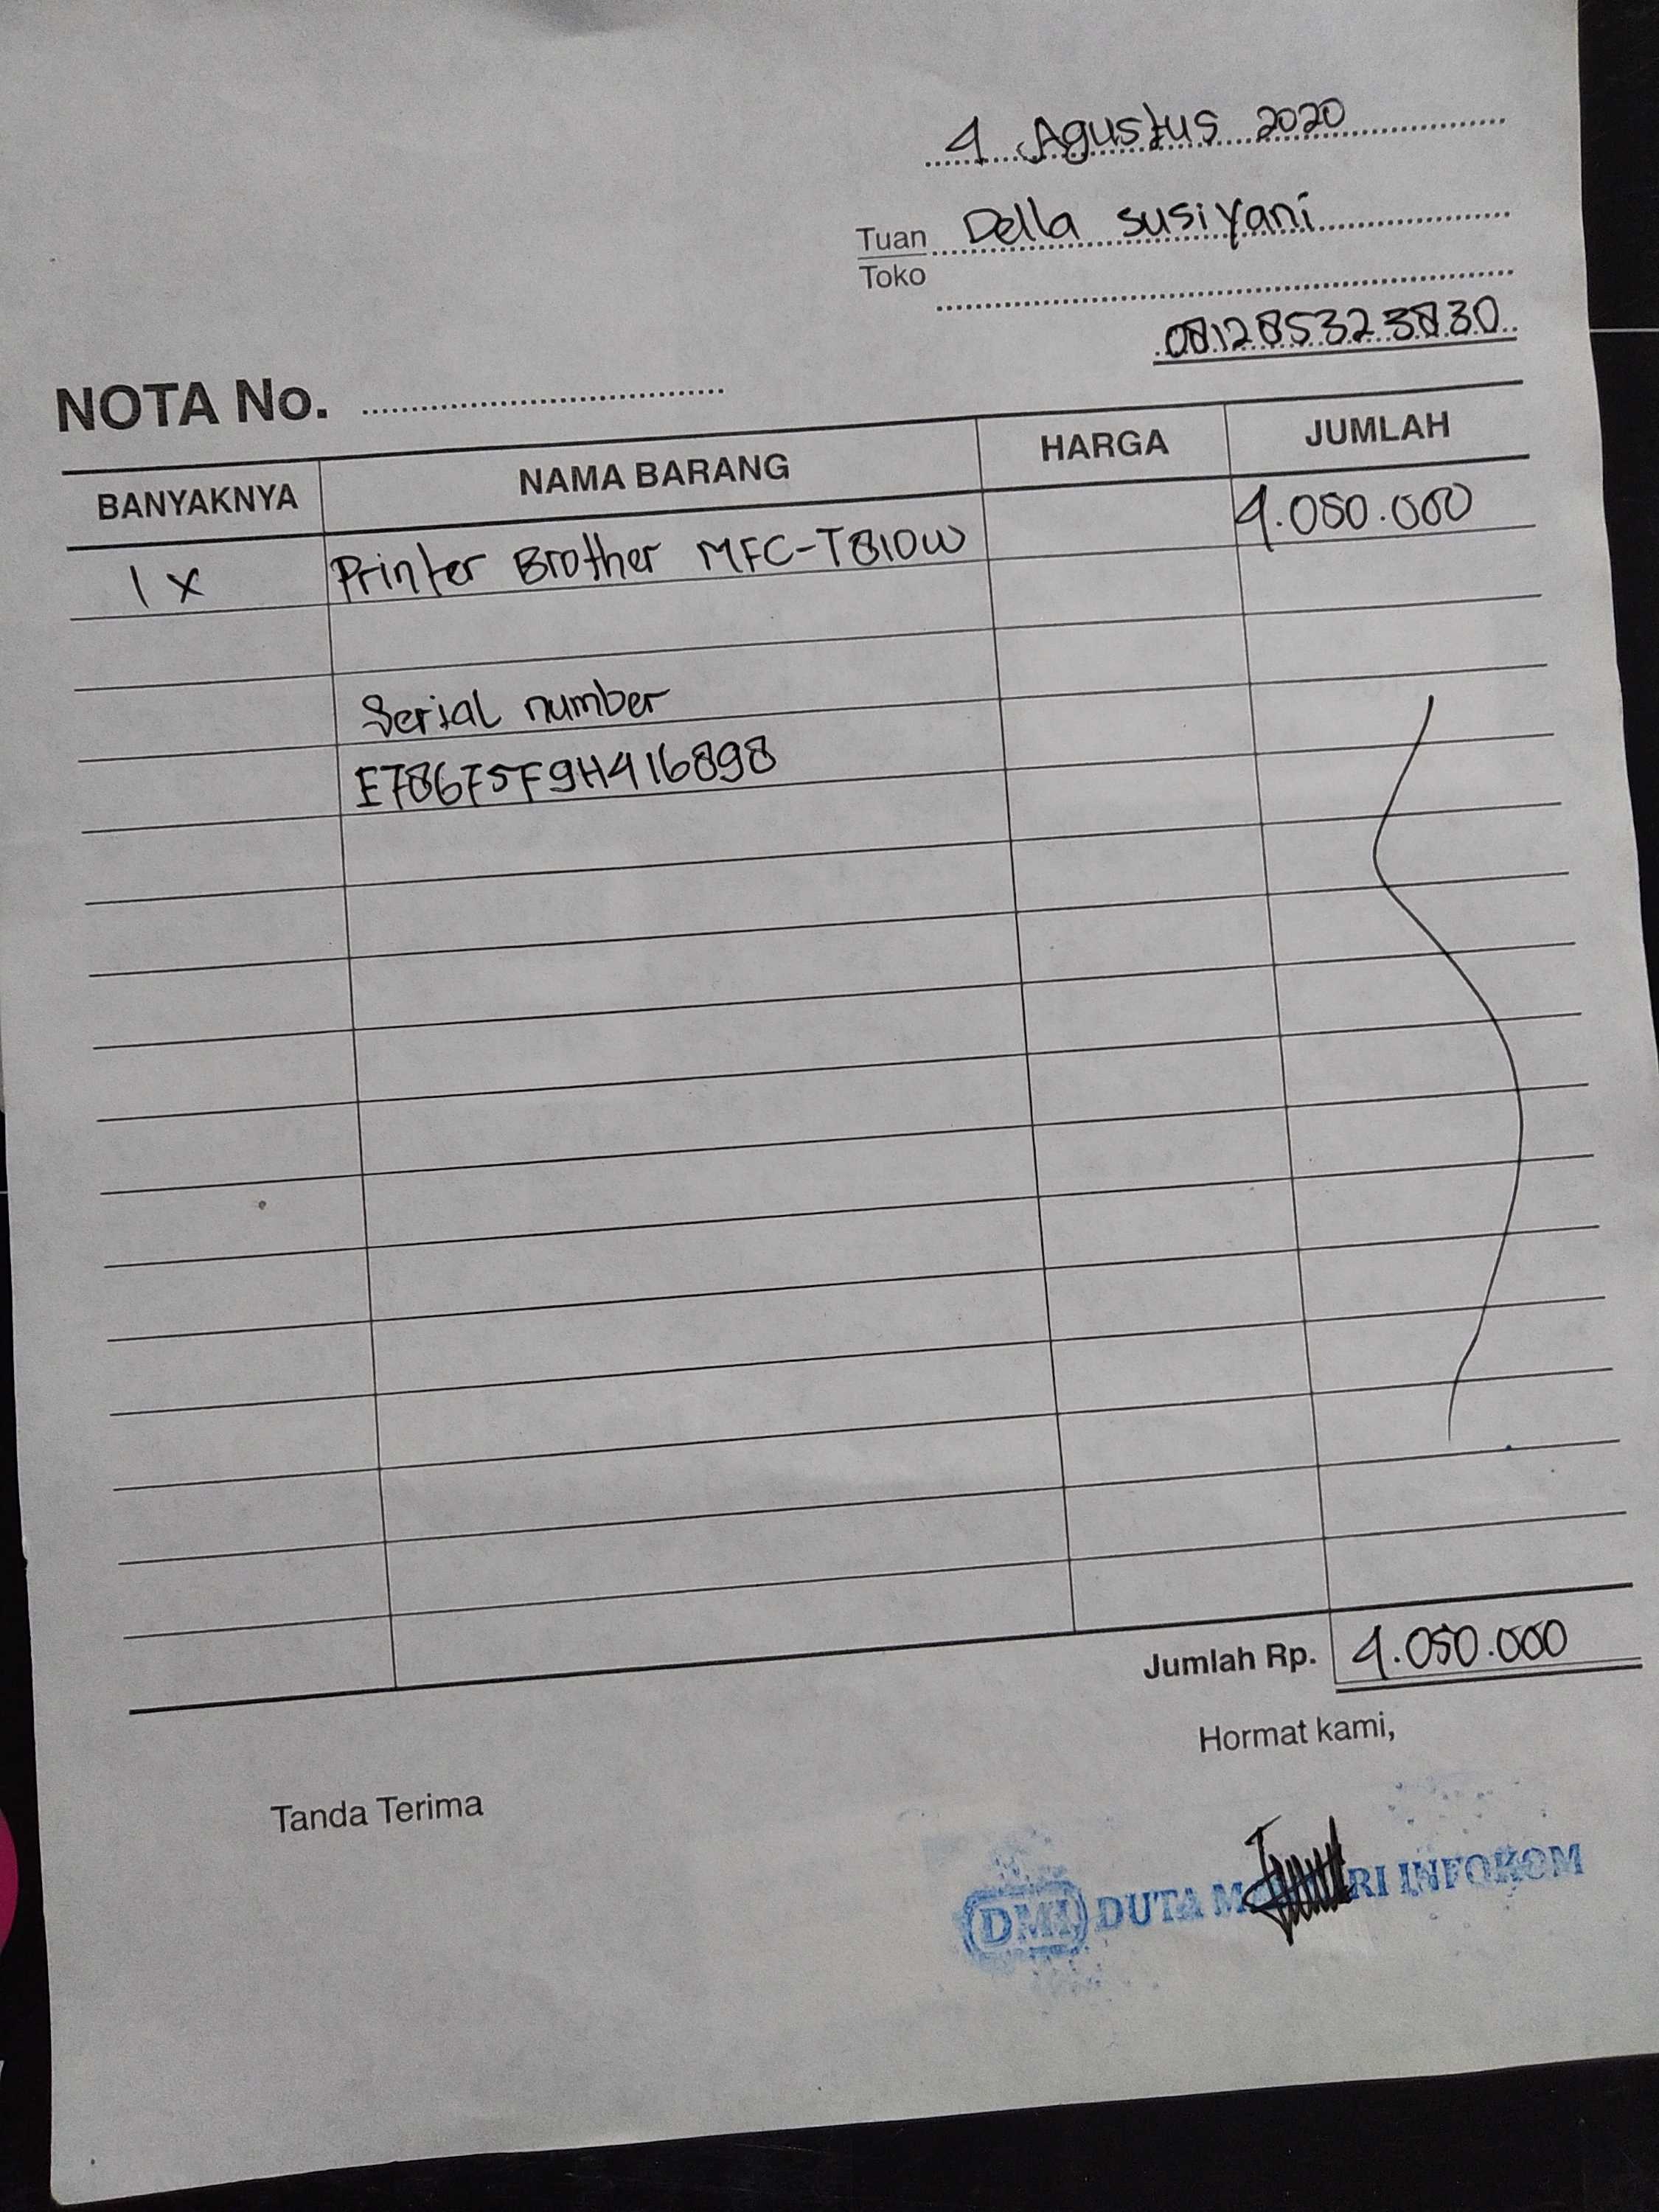 4 Agustus 2020
Tuan Della susiyani
Toko
081285323830
NOTA No.
BANYAKNYA NAMA BARANG HARGA JUMLAH
1 x Printer Brother MFC-T810W 4.050.000
Serial number
E78675F9H416898
Jumlah Rp. 4.050.000
Hormat kami,
Tanda Terima
DMI DUTA RI INFOKOM